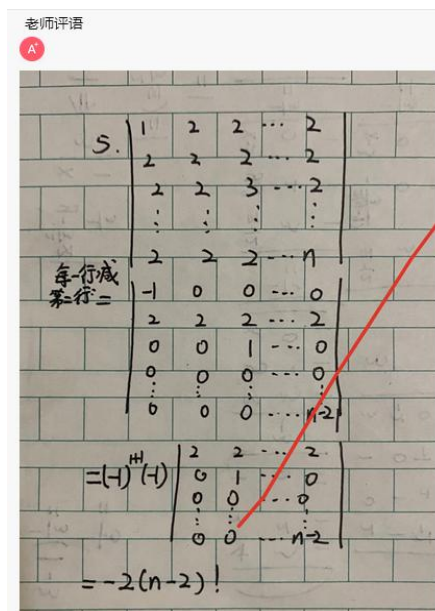 老师评语
A+
1 2 2 ... 2
5. 2 2 2 ... 2
2 2 3 ... 2
⋮ ⋮ ⋮ ⋮
2 2 2 ... n
每一行减
第二行 =
-1 0 0 ... 0
2 2 2 ... 2
0 0 1 ... 0
0 0 0 ... 0
⋮ ⋮ ⋮ ⋮
0 0 0 ... n-2
2 2 ... 2
=(-1)^{1+1}(-1) 0 1 ... 0
0 0 ... 0
⋮ ⋮ ⋮
0 0 ... n-2
=-2(n-2)!